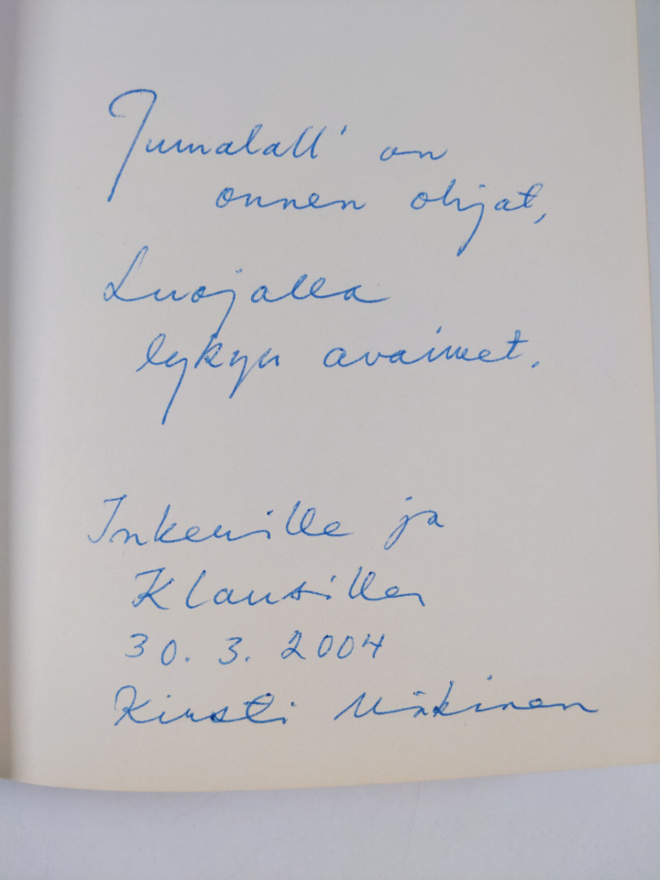 Jumalall' on
onnen ohjat,
Luojalla
lykyn avaimet.
Inkerille ja
Klausille
30. 3. 2004
Kirsti Mäkinen